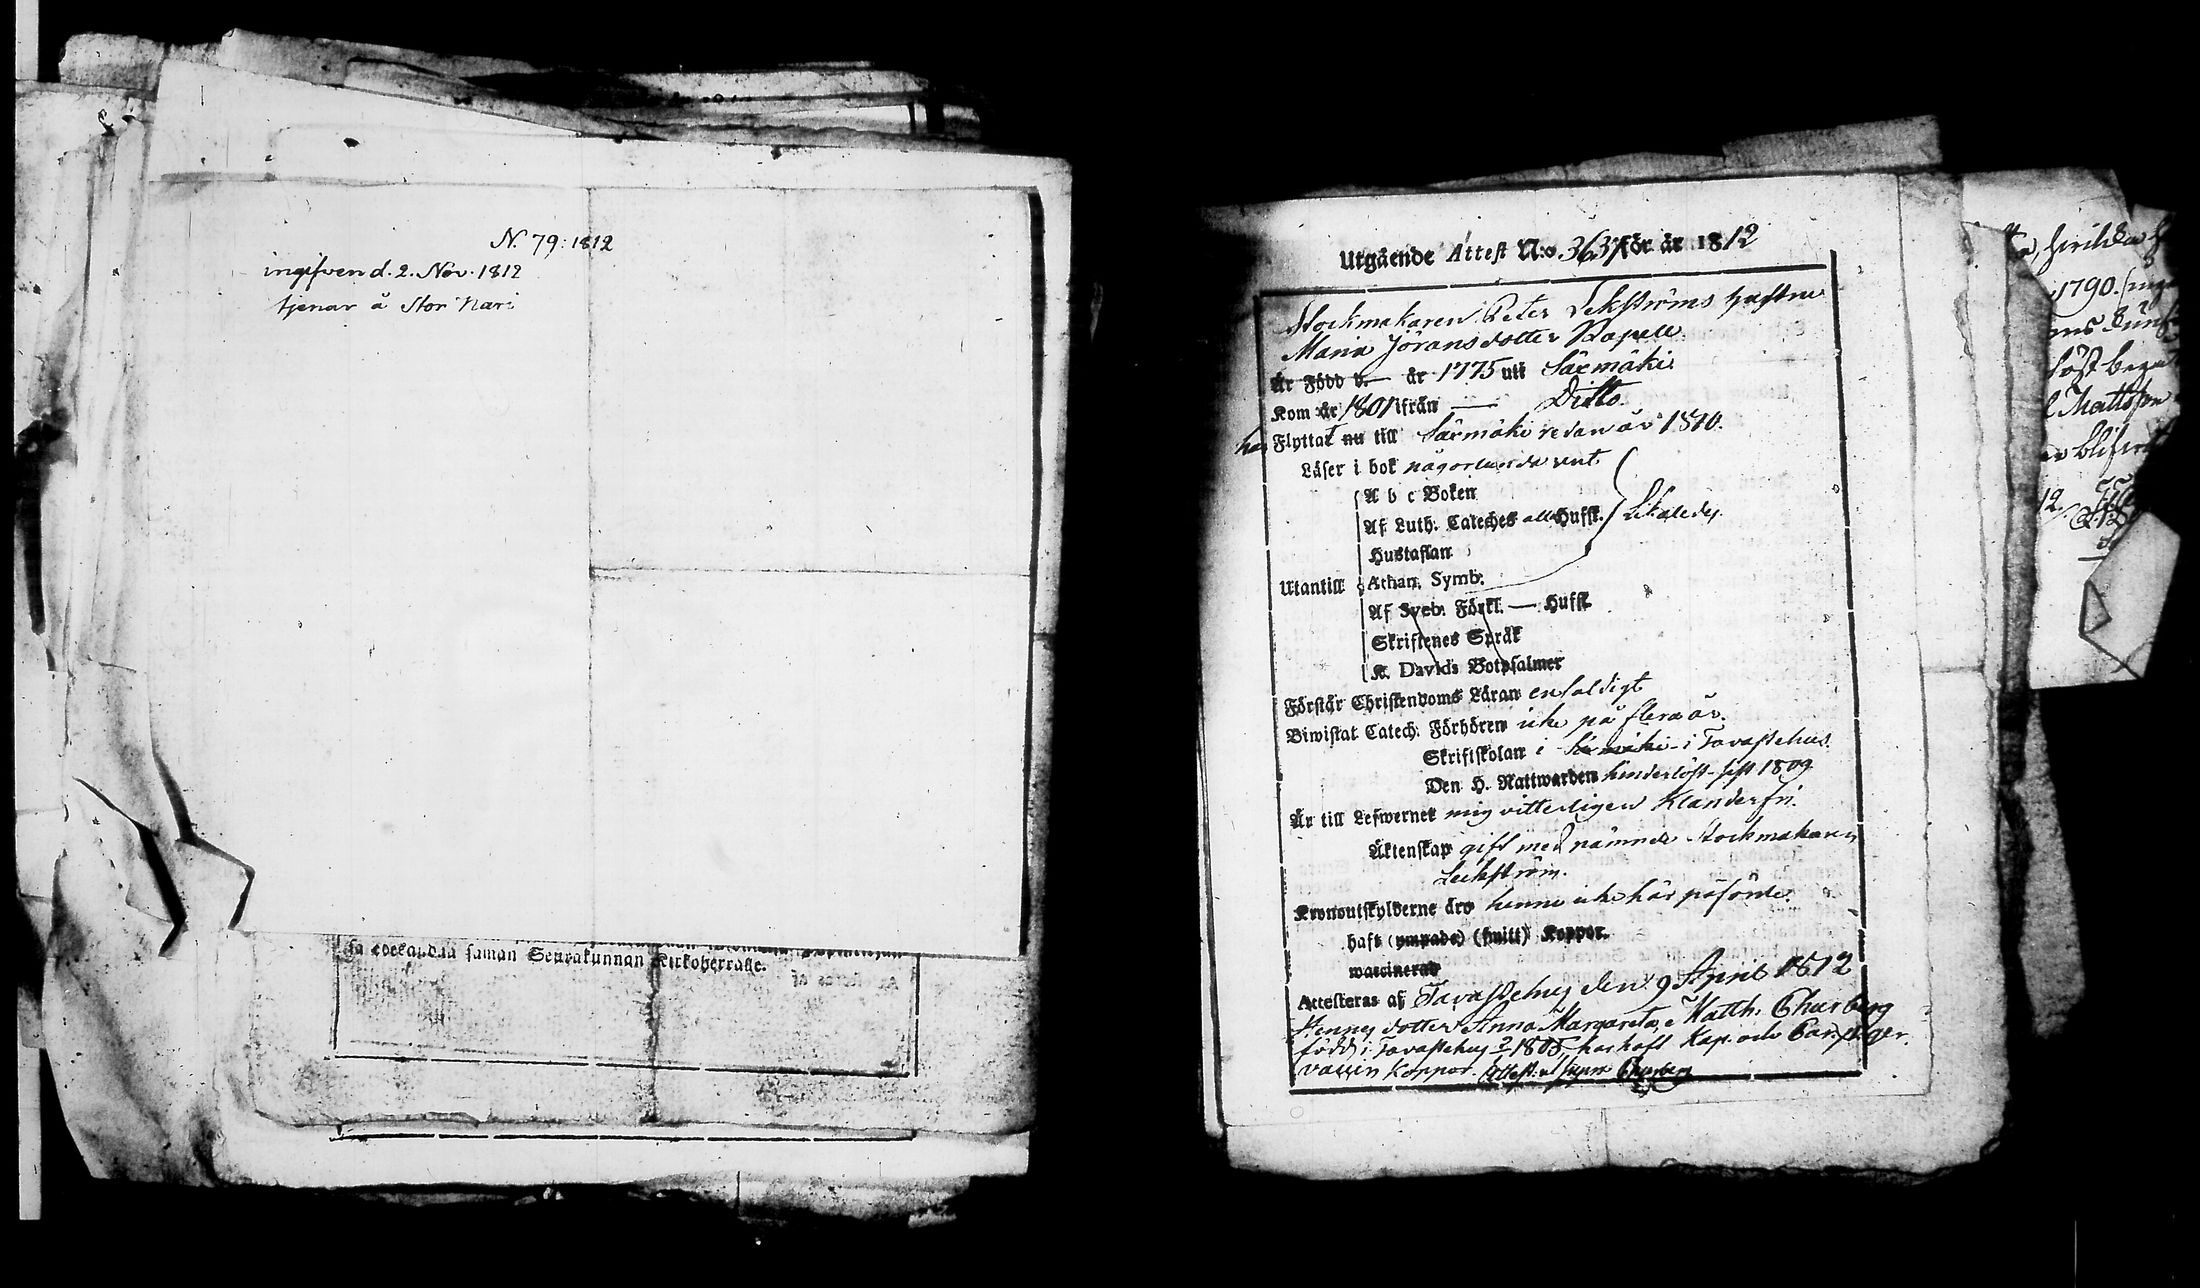 N. 79: 1812
ingifven d. 2. Nov. 1812
tjenar å Stor Nari
saman Seurakunnan Kirkoherralle.
Utgående Attest N:o 363 för år 1812
Stockmakaren Peter Lekströms hustru
Maria Jöransdotter
Är Född d. — år 1775 uti Säxmäki
Kom år 1801 ifrån — Ditto.
har Flyttat nu till Säxmäki redan år 1810.
Läser i bok någorlunda rent
A b c Boken
Af Luth. Cateches alla Hufst. Likaledes
Hustaflan
Utantill Athan. Symb.
Af Sveb. Förkl. — Hufst.
Skriftenes Språk
K. Davids Botpsalmer
Förstår Christendoms Läran enfaldigt
Biwistat Catech. Förhören icke på flera år.
Skriftskolan i Säxmäki i Tavastehus.
Den H. Nattwarden hinderlöst sist 1809
Är till Lefwernet mig vitterligen klanderfri.
Äktenskap gift med nämnde Stockmakaren
Leekström.
Kronoutskylderne äro henne icke här påförde.
haft (ympade) (smitt) Koppor.
waccinerad
Attesteras af Tavastehus den 9 April 1812
Hennes dotter Anna Margareta, Matth. Churberg
född i Tavastehus 1805, har haft Kap. och
vaccin koppor. Attest. ut supra Churberg
1790.
Mattsson